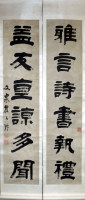 雅言詩書執禮
益友直諒多聞